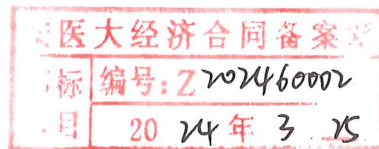 医大经济合同备案
标 编号:Z202460002
目 2024年3 25